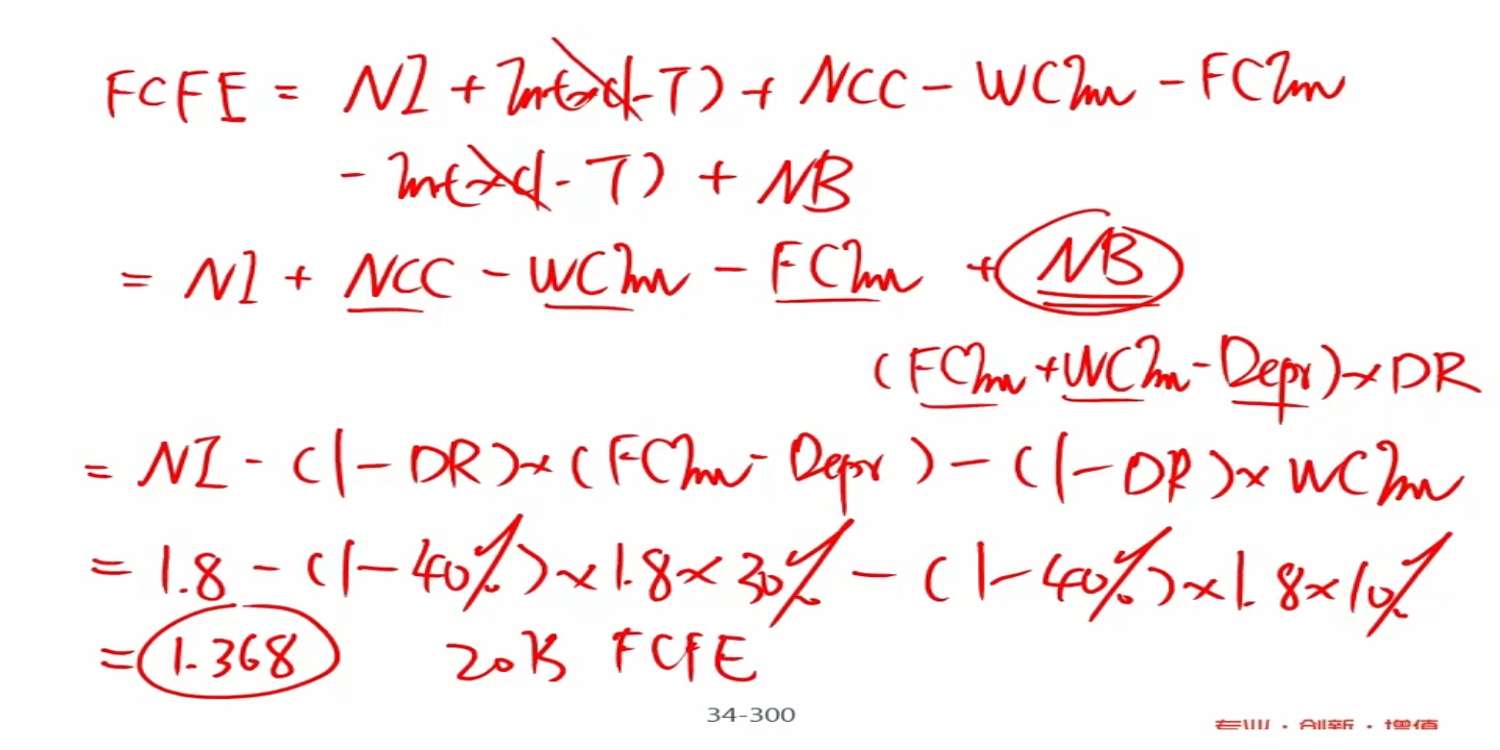 FCFE = NI + Int×(1-T) + NCC - WCInv - FCInv
- Int×(1-T) + NB
= NI + NCC - WCInv - FCInv + NB
(FCInv + WCInv - Depr) × DR
= NI - (1-DR) × (FCInv - Depr) - (1-DR) × WCInv
= 1.8 - (1-40%) × 1.8 × 30% - (1-40%) × 1.8 × 10%
= 1.368 2013 FCFE
34-300
专业·创新·增值